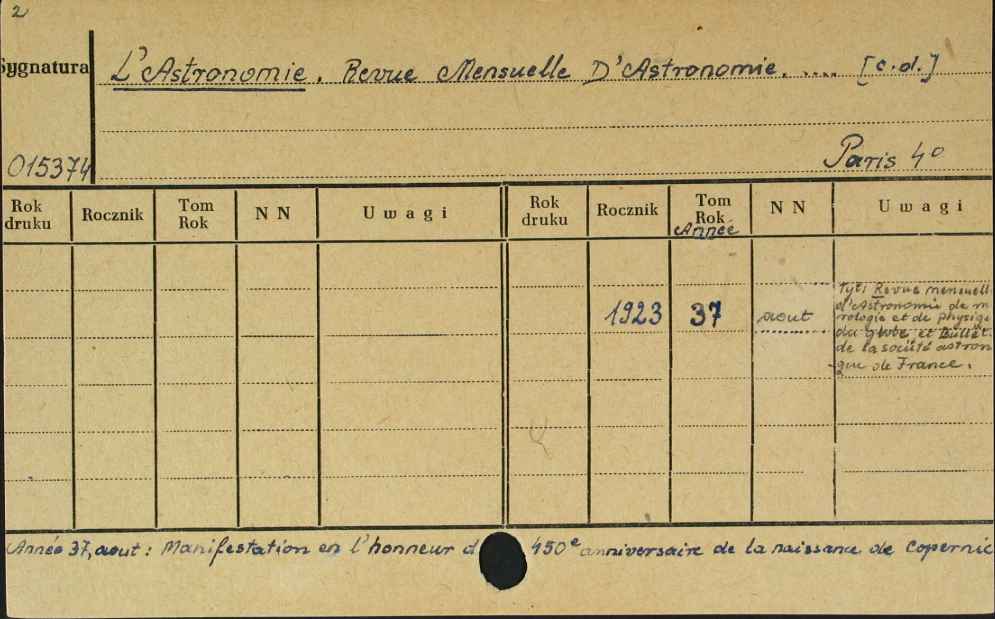 2
Sygnatura
L'Astronomie. Revue Mensuelle D'Astronomie. .... [c.d.]
015374
Paris 4º
Rok druku Rocznik Tom Rok N N Uwagi Rok druku Rocznik Tom Rok Année N N Uwagi
1923 37 aout
Tyt: Revue mensuell
d'Astronomie de m
rologie et de physiqu
du globe et Bullet.
de la société astron
que de France.
Année 37, aout: Manifestation en l'honneur d 450e anniversaire de la naissance de Copernic